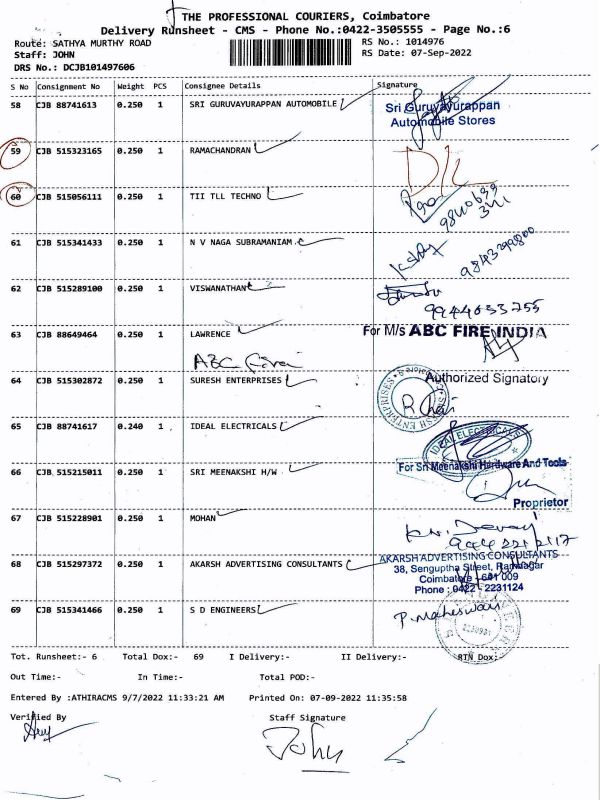 THE PROFESSIONAL COURIERS, Coimbatore
Delivery Runsheet - CMS - Phone No.:0422-3505555 - Page No.:6
Route: SATHYA MURTHY ROAD RS No.: 1014976
Staff: JOHN RS Date: 07-Sep-2022
DRS No.: DCJB101497606
S No Consignment No Weight PCS Consignee Details Signature
58 CJB 88741613 0.250 1 SRI GURUVAYURAPPAN AUTOMOBILE Sri Guruvayurappan
Automobile Stores
59 CJB 515323165 0.250 1 RAMACHANDRAN D/L
60 CJB 515056111 0.250 1 TII TLL TECHNO
61 CJB 515341433 0.250 1 N V NAGA SUBRAMANIAM 9843299800
62 CJB 515289100 0.250 1 VISWANATHAN
9944633755
63 CJB 88649464 0.250 1 LAWRENCE For M/s ABC FIRE INDIA
ABC
Authorized Signatory
64 CJB 515302872 0.250 1 SURESH ENTERPRISES
65 CJB 88741617 0.240 1 IDEAL ELECTRICALS IDEAL ELECTRICALS
66 CJB 515215011 0.250 1 SRI MEENAKSHI H/W For Sri Meenakshi Hardware And Tools
Proprietor
67 CJB 515228901 0.250 1 MOHAN
68 CJB 515297372 0.250 1 AKARSH ADVERTISING CONSULTANTS AKARSH ADVERTISING CONSULTANTS
38, Senguptha Street, Ramnagar
Coimbatore - 641 009
Phone : 0422 - 2231124
69 CJB 515341466 0.250 1 S D ENGINEERS P. Maheswari
Tot. Runsheet:- 6 Total Dox:- 69 I Delivery:- II Delivery:- RTN Dox:-
Out Time:- In Time:- Total POD:-
Entered By :ATHIRACMS 9/7/2022 11:33:21 AM Printed On: 07-09-2022 11:35:58
Verified By Staff Signature
John